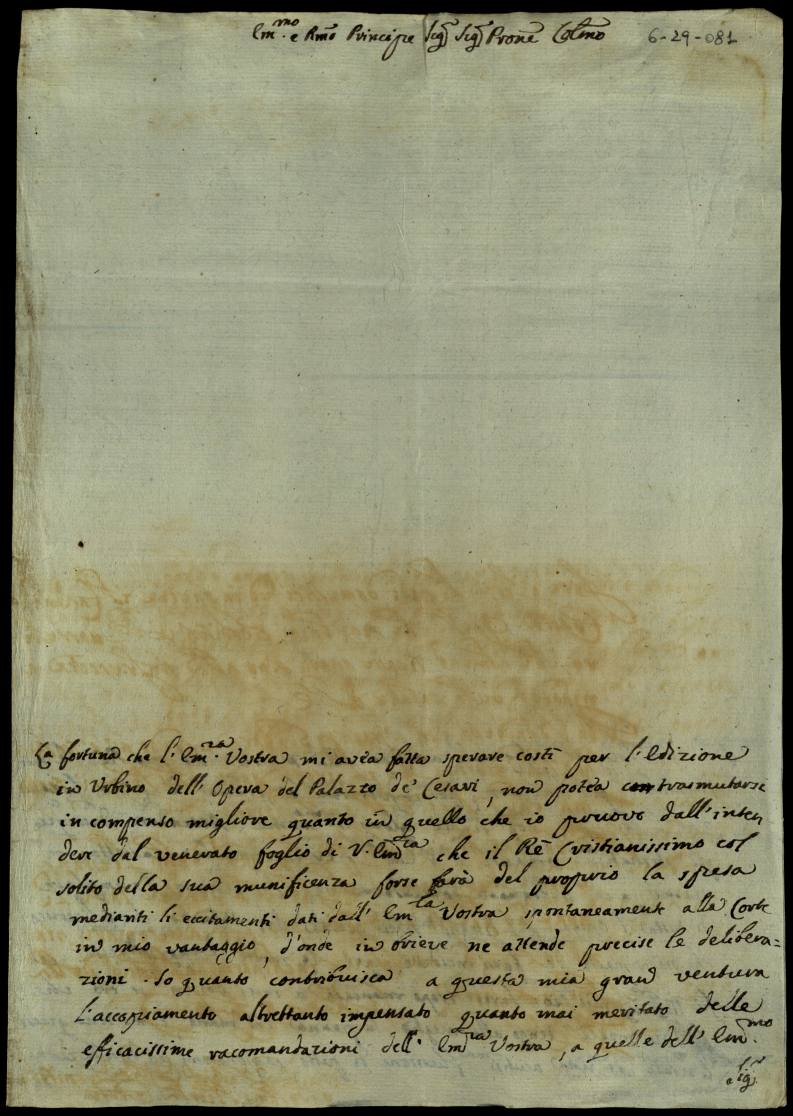 Em.mo e Rmo Principe Sig.r Sig.r Prone Colmo 6-29-081
La fortuna che l'Em.ra Vostra mi avea fatta sperare costì per l'Edizione
in Urbino dell'Opera del Palazzo de' Cesari, non potea contrasmutarsi
in compenso migliore quanto in quello che io pruovo dall'inten
dere dal venerato foglio di V. Em.ra che il Rè Cristianissimo col
solito della sua munificenza forse farà del proprio la spesa
medianti li eccitamenti dati dall' Em.ra Vostra spontaneamente alla Corte
in mio vantaggio, d'onde in brieve ne attende precise le delibera=
zioni. So quanto contribuisca a questa mia gran ventura
l'accoppiamento altrettanto impensato quanto mai meritato delle
efficacissime racomandazioni dell' Em.ra Vostra, a quelle dell' Em.mo
Sig.r